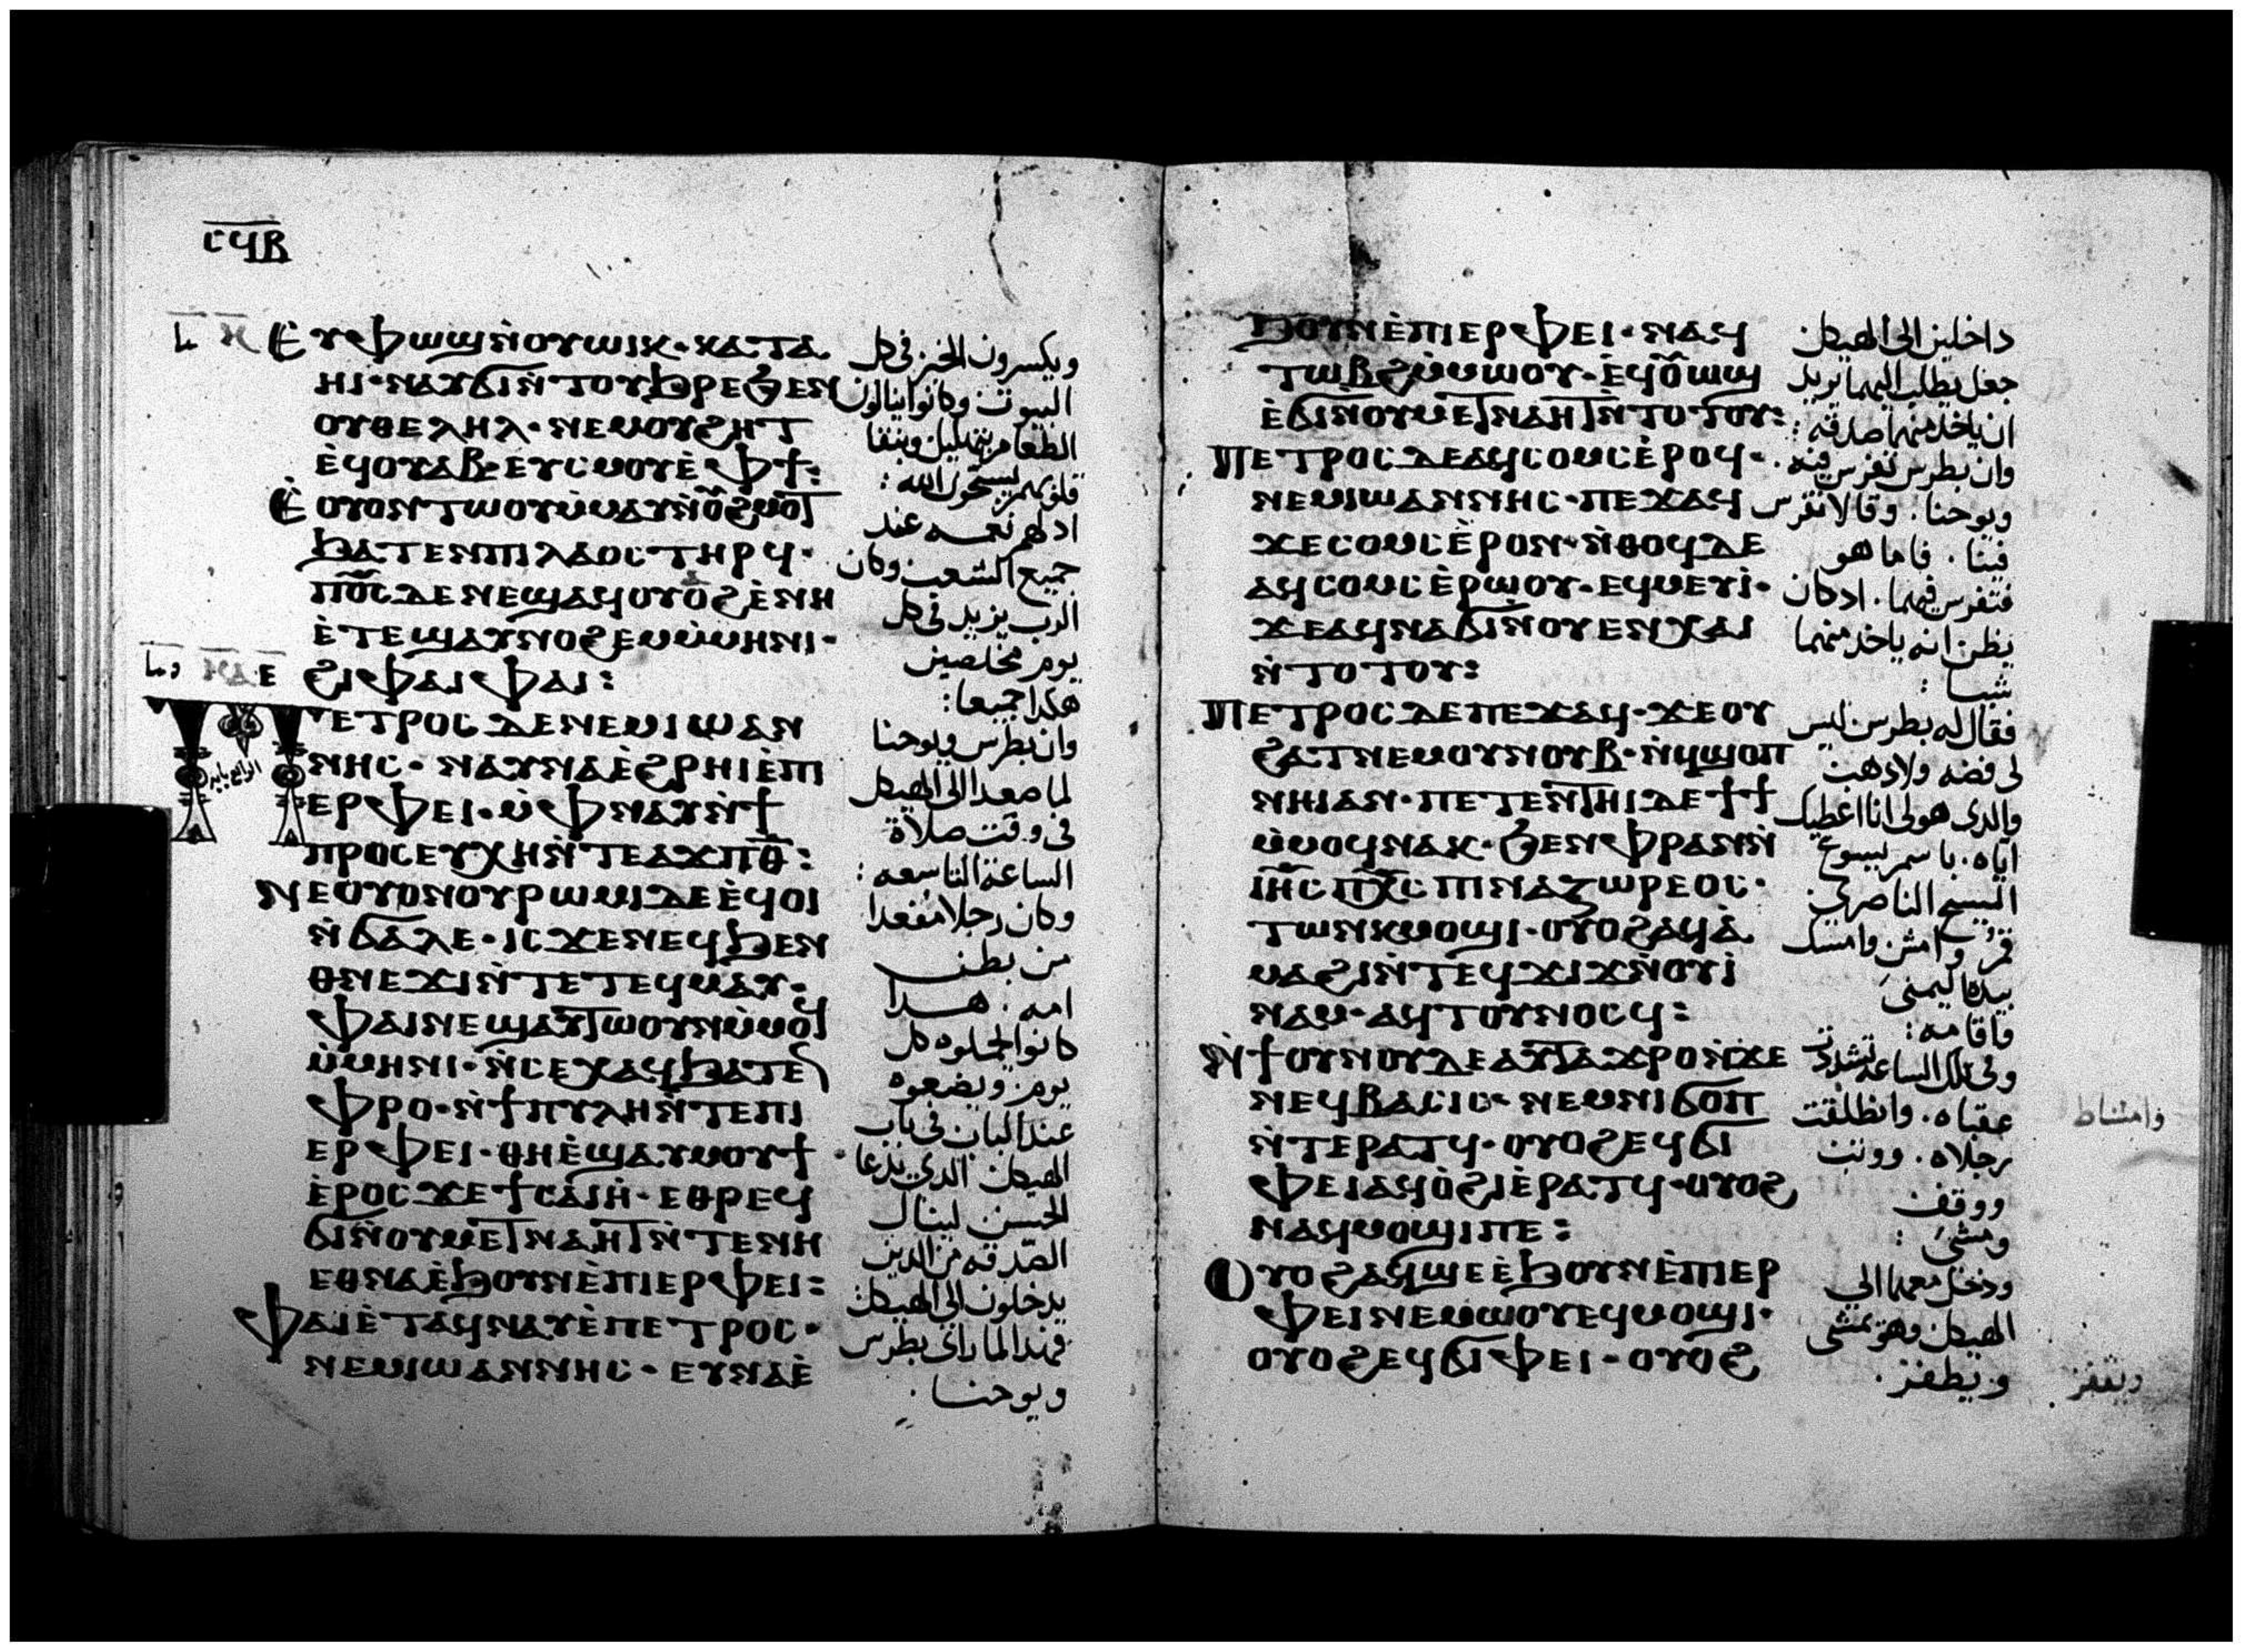 ⲥϥⲃ
Ⲉ̀ⲩⲫⲱϣⲛ̀ⲟⲩⲱⲓⲕ · ⲕⲁⲧⲁ
ⲏⲓ · ⲛⲁⲩϭⲓⲛ̀ⲧⲟⲩϧⲣⲉϧⲉⲛ
ⲟⲩⲑⲉⲗⲏⲗ · ⲛⲉⲙⲟⲩϩⲏⲧ
ⲉ̀ϥⲟⲩⲁⲃ · ⲉⲩⲥⲙⲟⲩⲉ̀ⲫϯ :
Ⲉ̀ⲟⲩⲟⲛⲧⲱⲟⲩⲙ̀ⲙⲁⲩⲛ̀ⲟ̅ϩⲙⲟⲧ
ϧⲁⲧⲉⲛⲡⲓⲗⲁⲟⲥⲧⲏⲣϥ ·
ⲡⲟ̅ⲥ̅ⲇⲉⲛⲉϣⲁϥⲟⲩⲟϩⲉ̀ⲛⲏ
ⲉ̀ⲧⲉϣⲁⲩⲛⲟϩⲉⲙⲙ̀ⲙⲏⲛⲓ ·
ϩⲓⲫⲁⲓⲫⲁⲓ :
ⲡⲉⲧⲣⲟⲥⲇⲉⲛⲉⲙⲓⲱⲁⲛ
ⲛⲏⲥ · ⲛⲁⲩⲛⲁⲉ̀ϩⲣⲏⲓⲉ̀ⲡⲓ
ⲉⲣⲫⲉⲓ · ⲙ̀ⲫⲛⲁⲩⲛ̀ϯ
ⲡⲣⲟⲥⲉⲩⲭⲏⲛ̀ⲧⲉⲁϫⲡⲑ̅ :
Ⲛⲉⲟⲩⲟⲛⲟⲩⲣⲱⲙⲓⲇⲉⲉ̀ϥⲟⲓ
ⲛ̀ϭⲁⲗⲉ · ⲓⲥϫⲉⲛⲉϥϧⲉⲛ
ⲑⲛⲉϫⲓⲛ̀ⲧⲉⲧⲉϥⲙⲁⲩ ·
ⲫⲁⲓⲛⲉϣⲁⲩⲧⲱⲟⲩⲛⲙ̀ⲙⲟϥ
ⲙ̀ⲙⲏⲛⲓ · ⲛ̀ⲥⲉⲭⲁϥϧⲁⲧⲉⲛ
ⲫⲣⲟ · ⲛ̀ϯⲡⲩⲗⲏⲛ̀ⲧⲉⲡⲓ
ⲉⲣⲫⲉⲓ · ⲑⲏⲉ̀ϣⲁⲩⲙⲟⲩϯ
ⲉ̀ⲣⲟⲥϫⲉϯⲥⲁⲓⲏ̀ · ⲉⲑⲣⲉϥ
ϭⲓⲛ̀ⲟⲩⲙⲉⲧⲛⲁⲏⲧⲛ̀ⲧⲉⲛⲏ
ⲉⲑⲛⲁⲉ̀ϧⲟⲩⲛⲉ̀ⲡⲓⲉⲣⲫⲉⲓ :
Ⲫⲁⲓⲉ̀ⲧⲁϥⲛⲁⲩⲉ̀ⲡⲉⲧⲣⲟⲥ ·
ⲛⲉⲙⲓⲱⲁⲛⲛⲏⲥ · ⲉⲩⲛⲁⲉ̀
ويكسرون الخبز فى كل
البيوت وكانوا ينالون
الطعام بتهليل وبنقا
قلوبهم يسبحون الله :
اد لهم نعمه عند
جميع الشعب وكان
الرب يزيد فى كل
يوم مخلصين
هكدا جميعا :
وان بطرس ويوحنا
لما صعدا الى الهيكل
فى وقت صلاة
الساعة التاسعه :
وكان رجلا مقعدا
من بطن
امه . هدا
كانوا يحملوه كل
يوم . ويضعوه
عند الباب فى باب
الهيكل الدى يدعا
الحسن لينال
الصدقه من الدين
يدخلون الى الهيكل
فهدا لما راى بطرس
ويوحنا .
ϧⲟⲩⲛⲉ̀ⲡⲓⲉⲣⲫⲉⲓ · ⲛⲁϥ
ⲧⲱⲃϩⲙ̀ⲙⲱⲟⲩ · ⲉ̀ϥⲟ̅ⲩⲱϣ
ⲉ̀ϭⲓⲛ̀ⲟⲩⲙⲉⲧⲛⲁⲏⲧⲛ̀ⲧⲟⲧⲟⲩ :
Ⲡⲉⲧⲣⲟⲥⲇⲉⲁϥⲥⲟⲙⲥⲉ̀ⲣⲟϥ ·
ⲛⲉⲙⲓⲱⲁⲛⲛⲏⲥ · ⲡⲉϫⲁϥ
ϫⲉⲥⲟⲙⲥⲉ̀ⲣⲟⲛ · ⲛ̀ⲑⲟϥⲇⲉ
ⲁϥⲥⲟⲙⲥⲉ̀ⲣⲱⲟⲩ · ⲉϥⲙⲉⲩⲓ̀ ·
ϫⲉⲁϥⲛⲁϭⲓⲛ̀ⲟⲩⲉⲛⲭⲁⲓ
ⲛ̀ⲧⲟⲧⲟⲩ :
Ⲡⲉⲧⲣⲟⲥⲇⲉⲡⲉϫⲁϥ · ϫⲉⲟⲩ
ϩⲁⲧⲛⲉⲙⲟⲩⲛⲟⲩⲃ · ⲛ̀ϥϣⲟⲡ
ⲛⲏⲓⲁⲛ · ⲡⲉⲧⲉⲛⲧⲏⲓⲇⲉϯϯ
ⲙ̀ⲙⲟϥⲛⲁⲕ · ϧⲉⲛⲫⲣⲁⲛⲛ̀
ⲓⲏ̅ⲥⲡⲭ̅ⲥⲡⲓⲛⲁⲍⲱⲣⲉⲟⲥ ·
ⲧⲱⲛⲕⲙⲟϣⲓ · ⲟⲩⲟϩⲁϥⲁ̀
ⲙⲁϩⲓⲛ̀ⲧⲉϥϫⲓϫⲛ̀ⲟⲩⲓ̀
ⲛⲁⲙ · ⲁϥⲧⲟⲩⲛⲟⲥϥ :
Ⲛ̀ϯⲟⲩⲛⲟⲩⲇⲉⲁⲩⲧⲁϫⲣⲟⲛ̀ϫⲉ
ⲛⲉϥⲃⲁⲥⲓⲥ · ⲛⲉⲙⲛⲓϭⲟⲡ
ⲛ̀ⲧⲉⲣⲁⲧϥ · ⲟⲩⲟϩⲉϥϭⲓ
ⲫⲉⲓⲁϥⲟ̀ϩⲓⲉ̀ⲣⲁⲧϥ · ⲟⲩⲟϩ
ⲛⲁϥⲙⲟϣⲓⲡⲉ :
Ⲟⲩⲟϩⲁϥϣⲉⲉ̀ϧⲟⲩⲛⲉ̀ⲡⲓⲉⲣ
ⲫⲉⲓⲛⲉⲙⲱⲟⲩⲉϥⲙⲟϣⲓ ·
ⲟⲩⲟϩⲉϥϭⲓⲫⲉⲓ · ⲟⲩⲟϩ
داخلين الى الهيكل
جعل يطلب اليهما يريد
ان ياخد منهما صدقه :
وان بطرس تفرس فيه .
ويوحنا . وقالا تفرس
فينا . فاما هو
فتفرس فيهما . اد كان
يظن انه ياخد منهما
شيا :
فقال له بطرس ليس
لى فضه ولا دهب
والدى هو لى انا اعطيك
اياه . باسم يسوع
المسيح الناصرى
قم وامش وامسك
بيده اليمنى
فاقامه :
وفى تلك الساعة تشددت
عقباه . وانطلقت
رجلاه . ووتب
ووقف
ومشى :
ودخل معهما الى
الهيكل وهو يمشى
ويطفز .
ويقفز